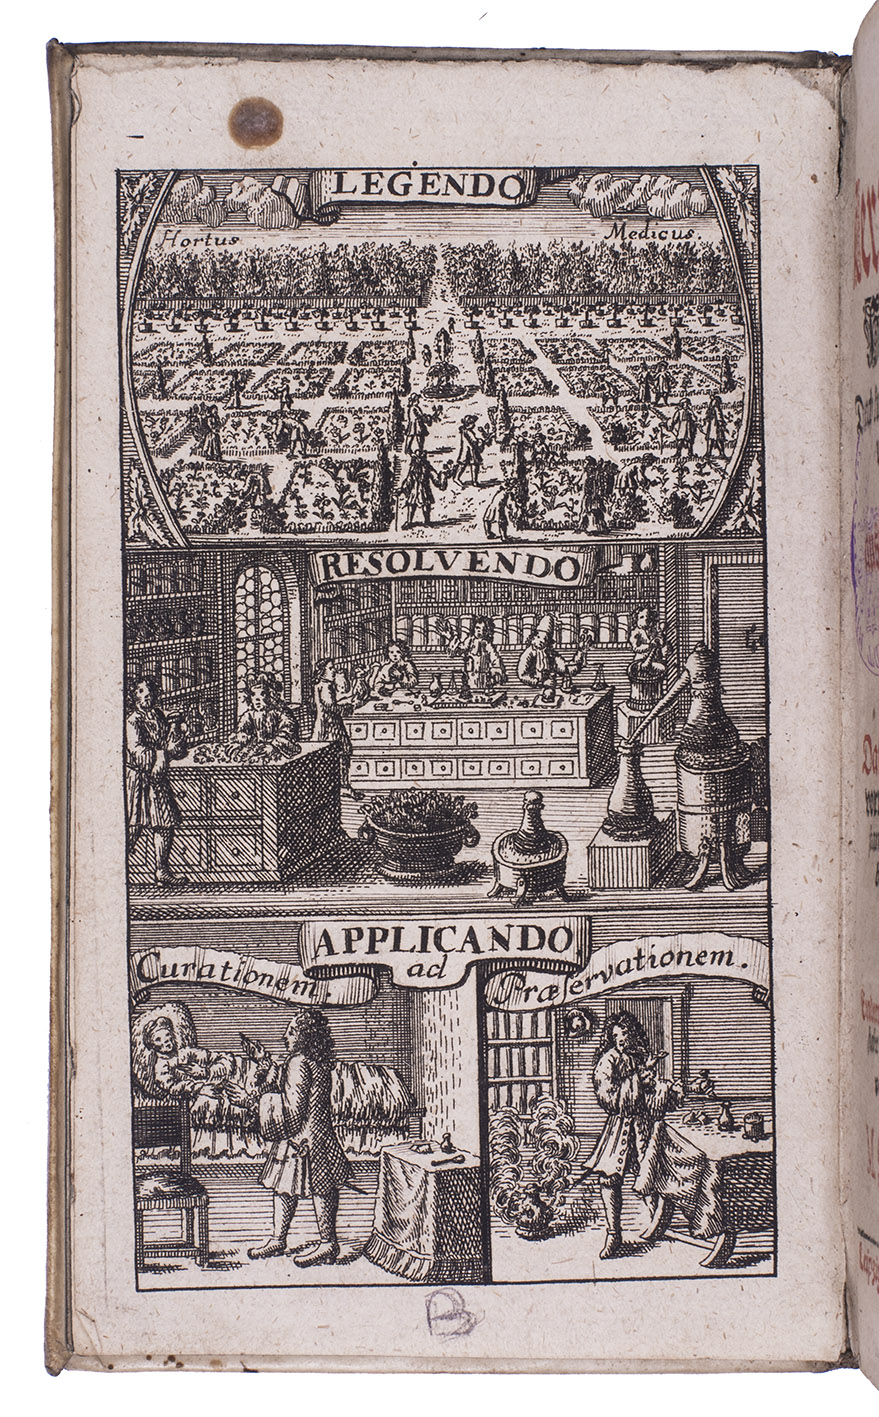 LEGENDO
Hortus Medicus.
RESOLVENDO
APPLICANDO
ad
Curationem. Præservationem.
B